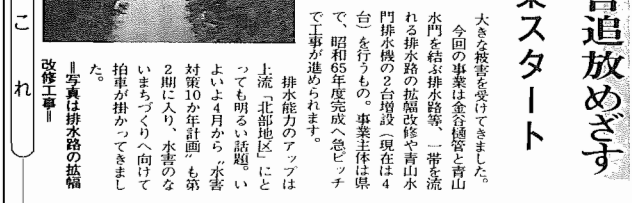 害追放めざす
業スタート
大きな被害を受けてきました。
今回の事業は金谷樋管と青山
水門を結ぶ排水路等、一帯を流
れる排水路の拡幅改修や青山水
門排水機の2台増設（現在は4
台）を行うもの。事業主体は県
で、昭和65年度完成へ急ピッチ
で工事が進められます。
排水能力のアップは
上流「北部地区」にと
っても明るい話題。い
よいよ4月から〝水害
対策10か年計画〟も第
2期に入り、水害のな
いまちづくりへ向けて
拍車が掛かってきまし
た。
＝写真は排水路の拡幅
改修工事＝
これ